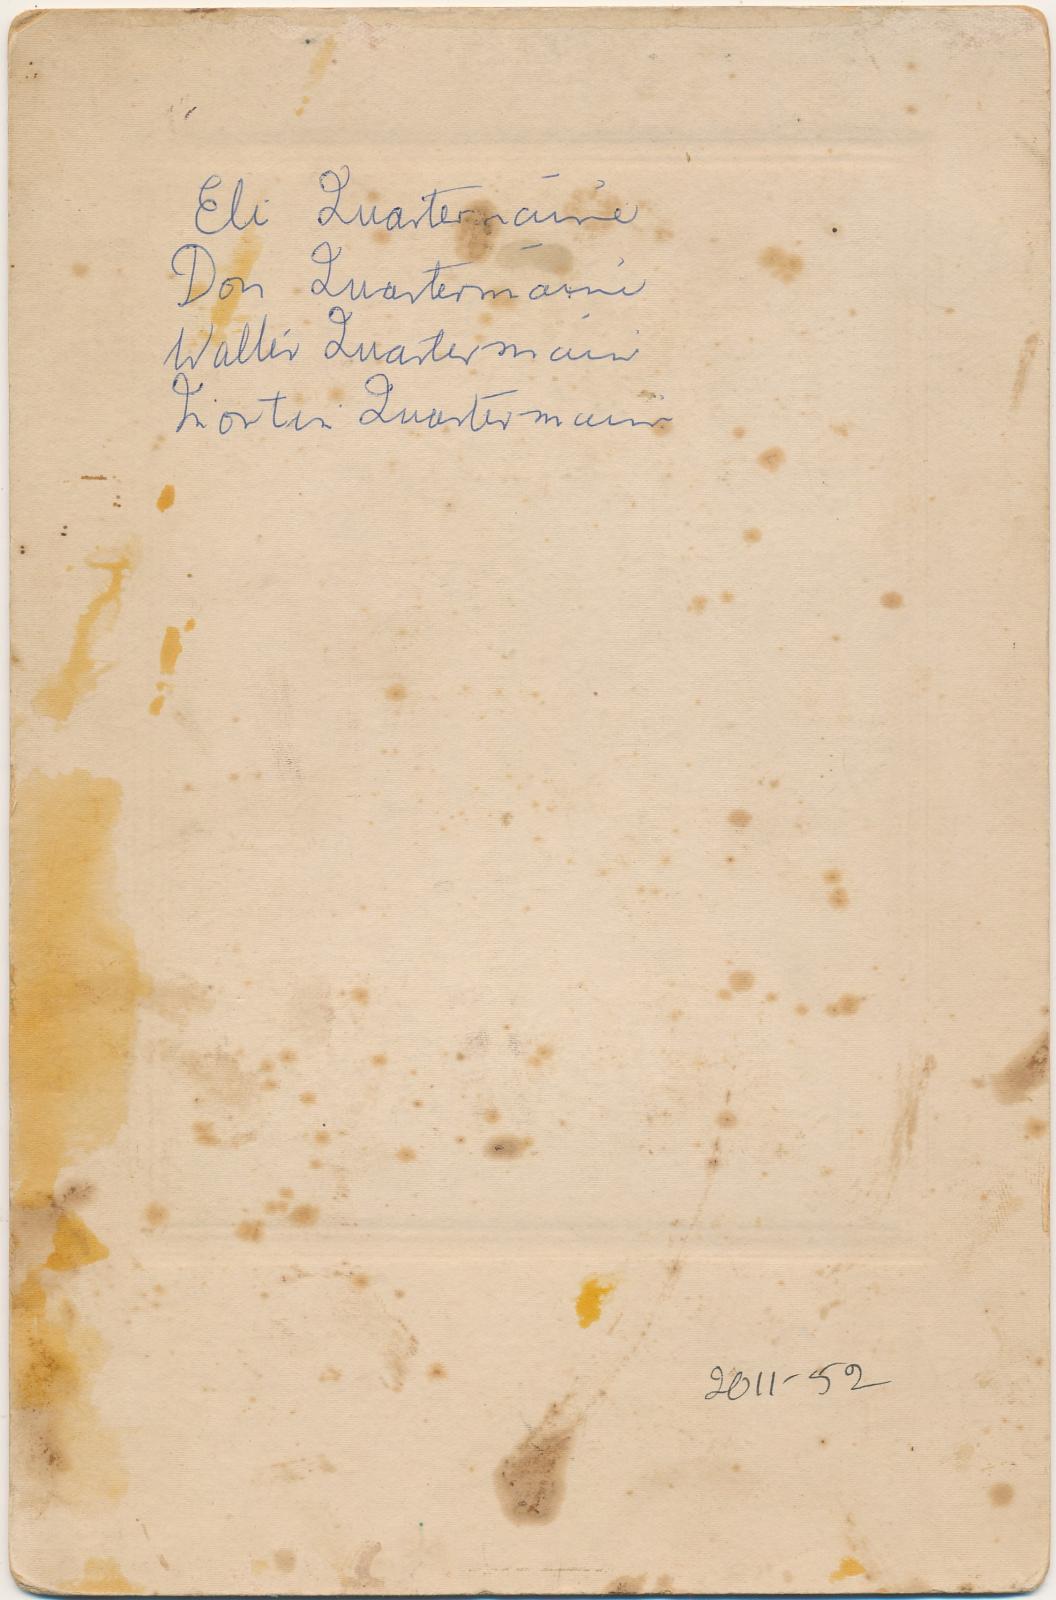 Eli Quartermaine
Don Quartermaine
Walter Quartermain
Quartermain
2011-52